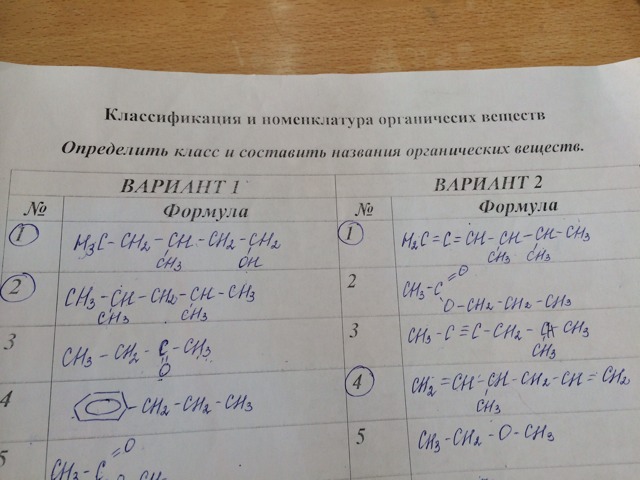 Классификация и номенклатура органичесих веществ
Определить класс и составить названия органических веществ.
ВАРИАНТ 1
ВАРИАНТ 2
№ Формула
№ Формула
1 H3C-CH2-CH-CH2-CH2
CH3 OH
1 H2C=C=CH-CH-CH-CH3
CH3 CH3
2 CH3-CH-CH2-CH-CH3
CH3 CH3
2 CH3-C=O
O-CH2-CH2-CH3
3 CH3-CH2-C-CH3
O
3 CH3-C≡C-CH2-CH CH3
CH3
4 -CH2-CH2-CH3
4 CH2=CH-CH-CH2-CH=CH2
CH3
5 CH3-C=O
5 CH3-CH2-O-CH3